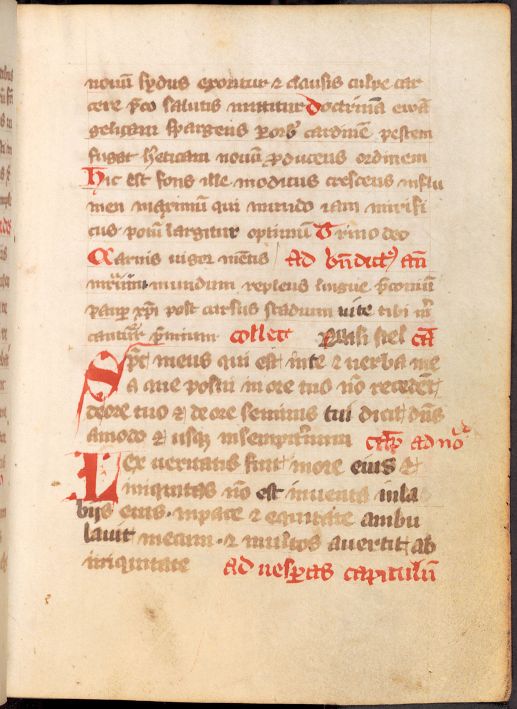 novum sydus exoritur & clausis culpe car
cere p̄co salutis mittitur doctrinā ewā
gelicam spargens p orb cardinē pestem
fugat hereticam novum producens ordinem
Hic est fons ille modicus crescens in flu
men maximum qui mundo iam mirifi
cus potum largitur optimum Trino deo
Carnis viger mentis Ad bn̄dict9 an̄
mundum replens lingue p̄conium
paup xp̄i post cursus stadium vite tibi
p̄mium collect stel
Sps meus qui est in te & verba me
a que posui in ore tuo nō recedent
de ore tuo & de ore seminis tui dicit dn̄s
amodo & usq in sempitnum cap̄ ad nō
Lex veritatis fuit in ore eius &
iniquitas nō est inventa in la
bijs eius in pace & equitate ambu
lavit mecum & multos avertit ab
iniquitate ad vespas capitulū